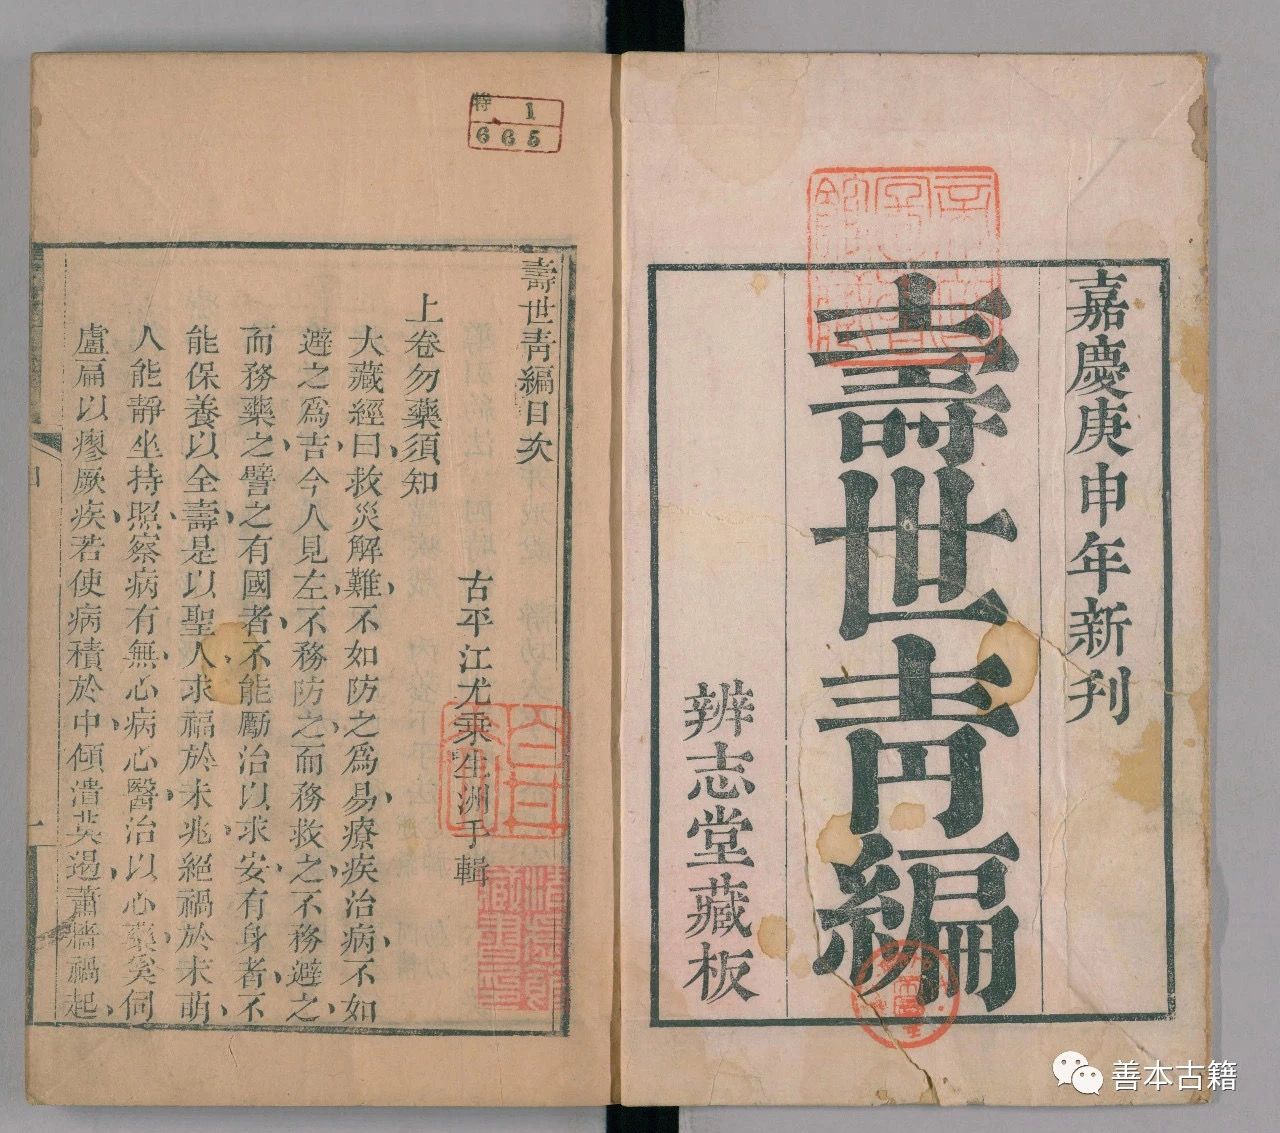 嘉慶庚申年新刊
壽世青編
辨志堂藏板
特 1
665
壽世青編目次
古平江尤乘生洲手輯
上卷勿藥須知
大藏經曰救災解難不如防之爲易療疾治病不如
避之爲吉今人見左不務防之而務救之不務避之
而務藥之譬之有國者不能勵治以求安有身者不
能保養以全壽是以聖人求福於未兆絕禍於未萌
人能靜坐持照察病有無心病心醫治以心藥奚伺
盧扁以瘳厥疾若使病積於中傾潰莫遏蕭牆禍起
藏書印
善本古籍